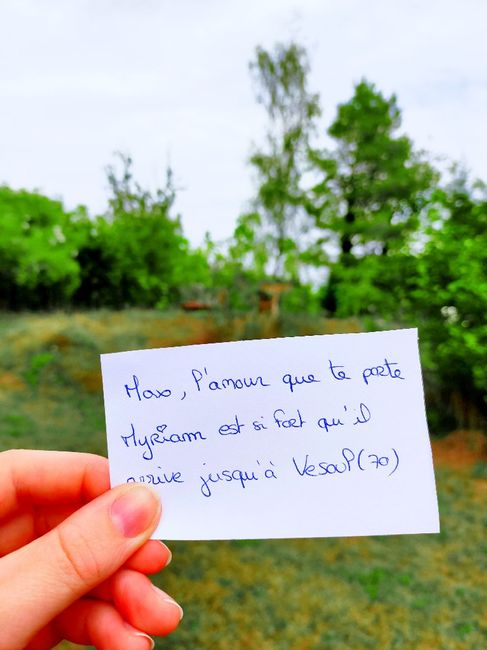 Maxo, l'amour que te porte
Myriam est si fort qu'il
arrive jusqu'à Vesoul (70)